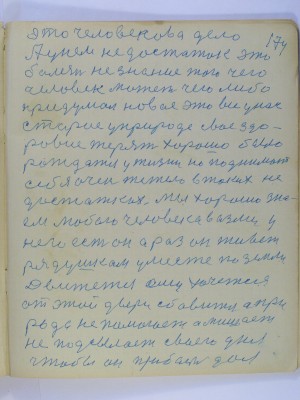 174
это человекова дело
А унем недостаток это
болят незнание того чего
человек может чего либо
придумал новая это все унас
старое уприроде свае здо-
ровие терят хорошо было
рождатся ужизни но поднимат
себя очен тежело втаких не
достатках мы хорошо зна-
ем любого человека вазми у
него ест он а раз он живет
рядушкам уместе по земли
движется ему хочется
от этой двери
рода не помогает а мешает
не подсылает своего духа
чтобы он прибыл дол